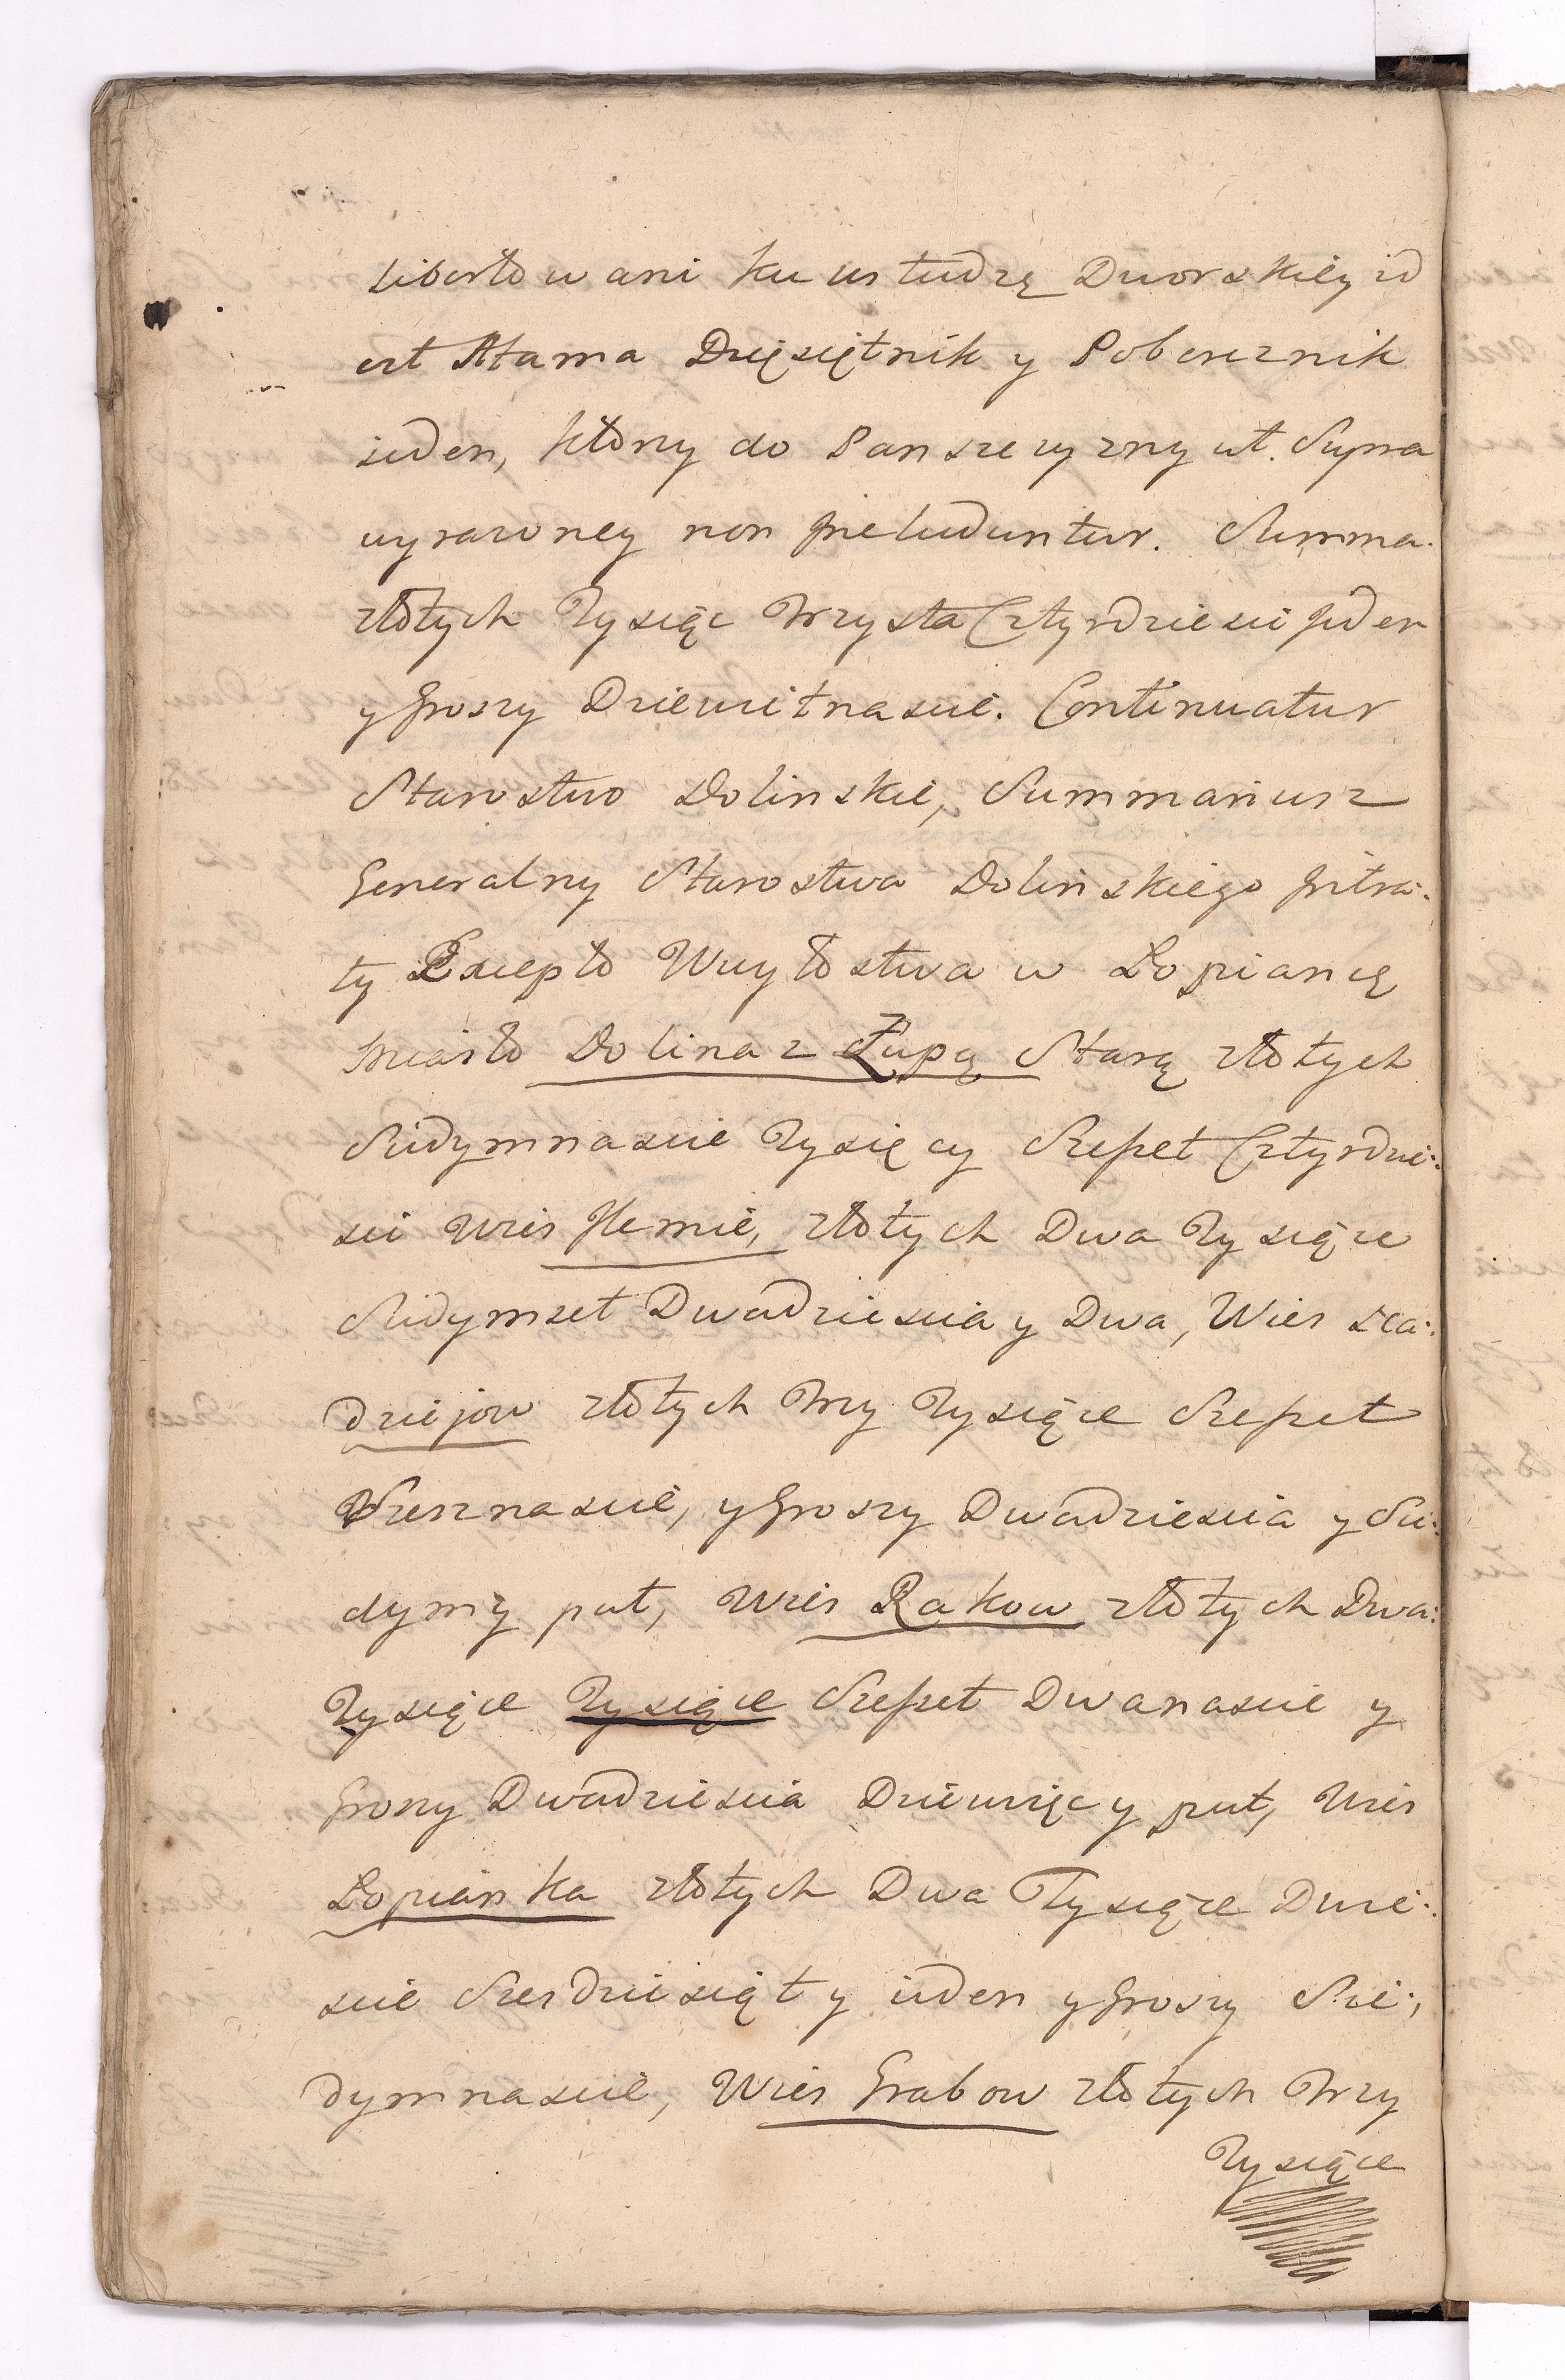 libertowani ku usłudzę Dworskiey id
est Atama Dzięsiętnik y Pobereznik
ieden, ktory do Panszczyzny ut. Supra
wyrazoney non includuntur. Summa.
złotych Tysiąc Trzysta Cztyrdziesci Jeden
y Groszy Dziewietnascie. Continuatur
Starostwo Dolinskie, Summariusz
Generalny Starostwa Dolinskiego intra:
ty Excepto Wuytostwa w Łopiancę
Miasto Dolina z Żupą Starą złotych
Siedymnascie Tysięcy Szeset Cztyrdzie:
sci Wies Hemie, złotych Dwa Tysiące
Siedymset Dwadziescia y Dwa, Wies Sta:
dziejow złotych Trzy Tysiące Szeset
Szesznascie, y Groszy Dwadziescia y Sie:
dymy puł, Wies Rakow złotych Dwa:
Tysiące Tysiące Szeset Dwanascie y
Groszy Dwadziescia Dziewięc y puł, Wies
Łopianka złotych Dwa Tysiące Dwie:
scie Szesdziesiąt y ieden y Groszy Sie:
dymnascie, Wies Grabow złotych Trzy
Tysiące